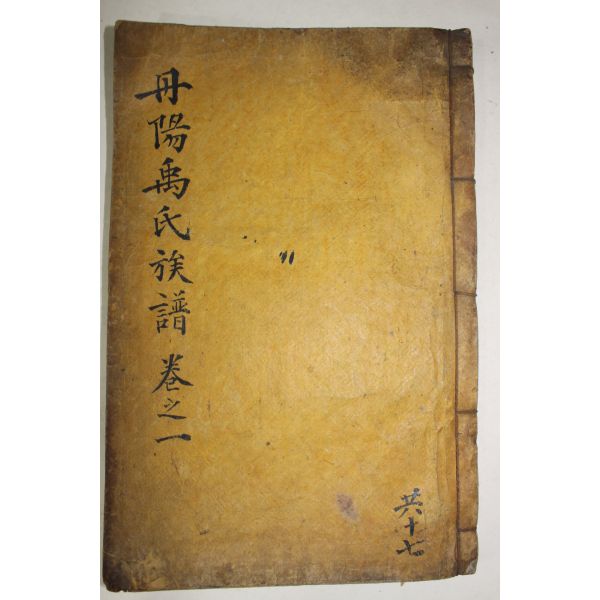 丹陽禹氏族譜 卷之一
共十七